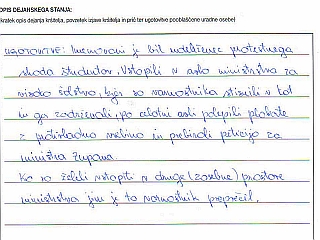 OPIS DEJANSKEGA STANJA:
kratek opis dejanja kršitelja, povzetek izjave kršitelja in prič ter ugotovitve pooblaščene uradne osebe)
UGOTOVITVE: Imenovani je bil udeleženec protestnega
shoda študentov. Vstopili v avlo ministrstva za
visoko šolstvo, kjer so varnostnika stisnili v kot
in ga zadrževali, po celotni avli polepili plakate
z protivladno vsebino in prebirali peticijo za
ministra Zupana.
Ko so želeli vstopiti v druge (zasebne) prostore
ministrstva jim je to varnostnik preprečil.